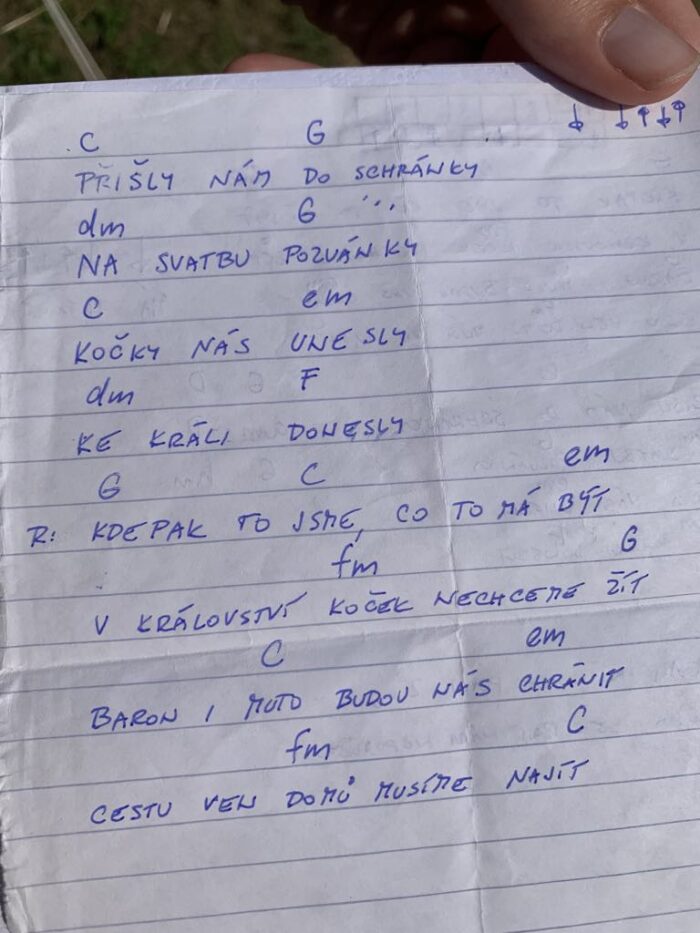 C G ↓ ↓↑↓↑
PŘIŠLY NÁM DO SCHRÁNKY
dm G ...
NA SVATBU POZVÁNKY
C em
KOČKY NÁS UNESLY
dm F
KE KRÁLI DONESLY
G C em
R: KDEPAK TO JSME, CO TO MÁ BÝT
fm G
V KRÁLOVSTVÍ KOČEK NECHCEME ŽÍT
C em
BARON I MUTO BUDOU NÁS CHRÁNIT
fm C
CESTU VEN DOMŮ MUSÍME NAJÍT